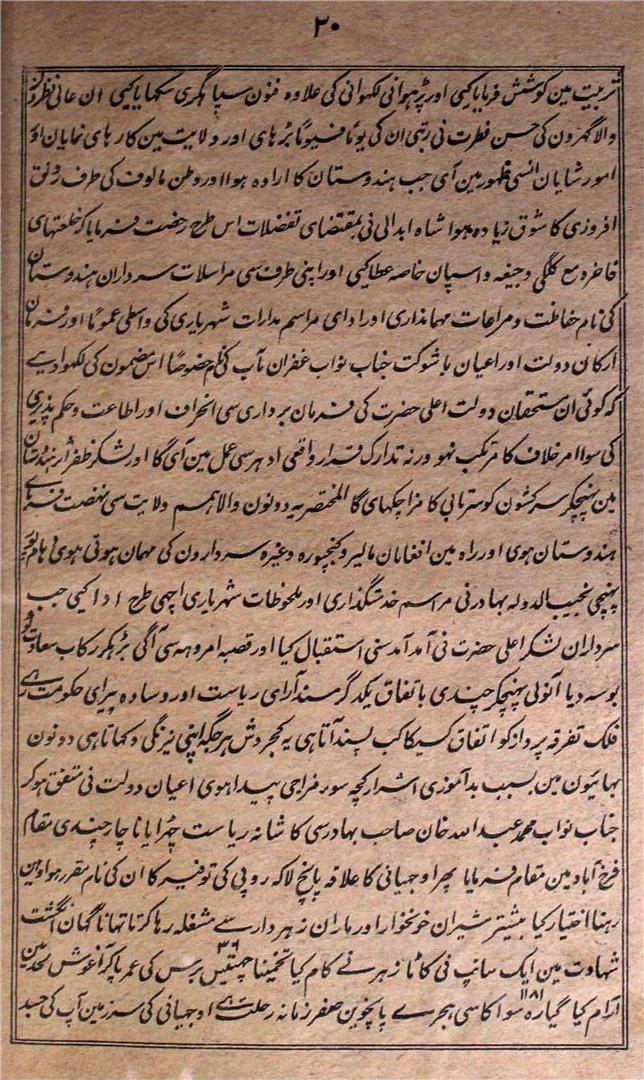 ۲۰
تربیت مین کوشش فرمایا کیی اور پڑہوانی لکہوانی کی علاوہ فنون سپاہگری سکہایا کیی ان عالی نظرون
والا گہرون کی حسن فطرت نی رتبی ان کی یوماً فیوماً بڑہای اور ولایت مین کارہای نمایان اؤ
امور شایان انسی ظہور مین آی جب ہندوستان کا ارادہ ہوا اور وطن مالوف کی طرف رونق
افروزی کا شوق زیادہ ہوا شاہ ابدالی نی بمقتضای تفضلات اس طرح رخصت فرمایا کہ خلعتہای
فاخرہ مع کلگی و جیغہ و اسپان خاصہ عطا کیی اور اپنی طرف سی مراسلات سرداران ہندوستان
کی نام حفاظت و مراعات مہمانداری اور ادای مراسم مدارات شہریاری کی واسطی عموماً اور فرمان
ارکان دولت اور اعیان با شوکت جناب نواب غفران مآب کی نام خصوصاً اس مضمون کی لکہوا دیے
کہ کوئی ان مستحقان دولت اعلی حضرت کی فرمان برداری سی انحراف اور اطاعت و حکم پذیری
کی سوا امر خلاف کا مرتکب نہو ورنہ تدارک قرار واقعی ادہر سی عمل مین آی گا اور لشکر ظفر اثر ہندوستان
مین پہنچکر سرکشون کو سرتابی کا مزا چکہای گا المختصر یہ دونون والا ہمم ولایت سی نہضت فرمای
ہندوستان ہوی اور راہ مین افغانان مالیر و کنجپورہ وغیرہ سردارون کی مہمان ہوتی ہوی
پہنچی نجیب الدولہ بہادر نی مراسم خدمتگذاری اور ملحوظات شہریاری اچہی طرح ادا کیی جب
سرداران لشکر اعلی حضرت نی آمد آمد سنی استقبال کیا اور قصبہ امروہہ سی آگی بڑہکر رکاب سعادت کو
بوسہ دیا آنولی پہنچکر چندی باتفاق یکدگر مسند آرای ریاست اور وسادہ پیرای حکومت رہے
فلک تفرقہ پرداز کو اتفاق کسیکا کب پسند آتا ہی یہ کجروش ہر جگہ اپنی نیرنگی دکہاتا ہی دونون
بہائیون مین بسبب بدآموزی اشرار کچہ سوء مزاجی پیدا ہوی اعیان دولت نی متفق ہو کر
جناب نواب محمد عبد اللہ خان صاحب بہادر سی کا شانہ ریاست چہڑایا ناچار چندی مقام
فرخ آباد مین مقام فرمایا پھر اوجہیانی کا علاقہ پانچ لاکہ روپی کی توفیر کا ان کی نام مقرر ہوا وہین
رہنا اختیار کیا بیشتر شیران خونخوار اور ماران زہردار سے مشغلہ رہا کرتا تہا ناگہان انگشت
شہادت مین ایک سانپ نی کاٹا زہر نے کام کیا تخمیناً چہتیس ۳۶ برس کی عمر پا کر آغوش لحد مین
آرام کیا گیارہ سو اکاسی ۱۱۸۱ ہجرے پانچوین صفر زمانہ رحلت ہے اوجہیانی کی سرزمین آپ کی جسد